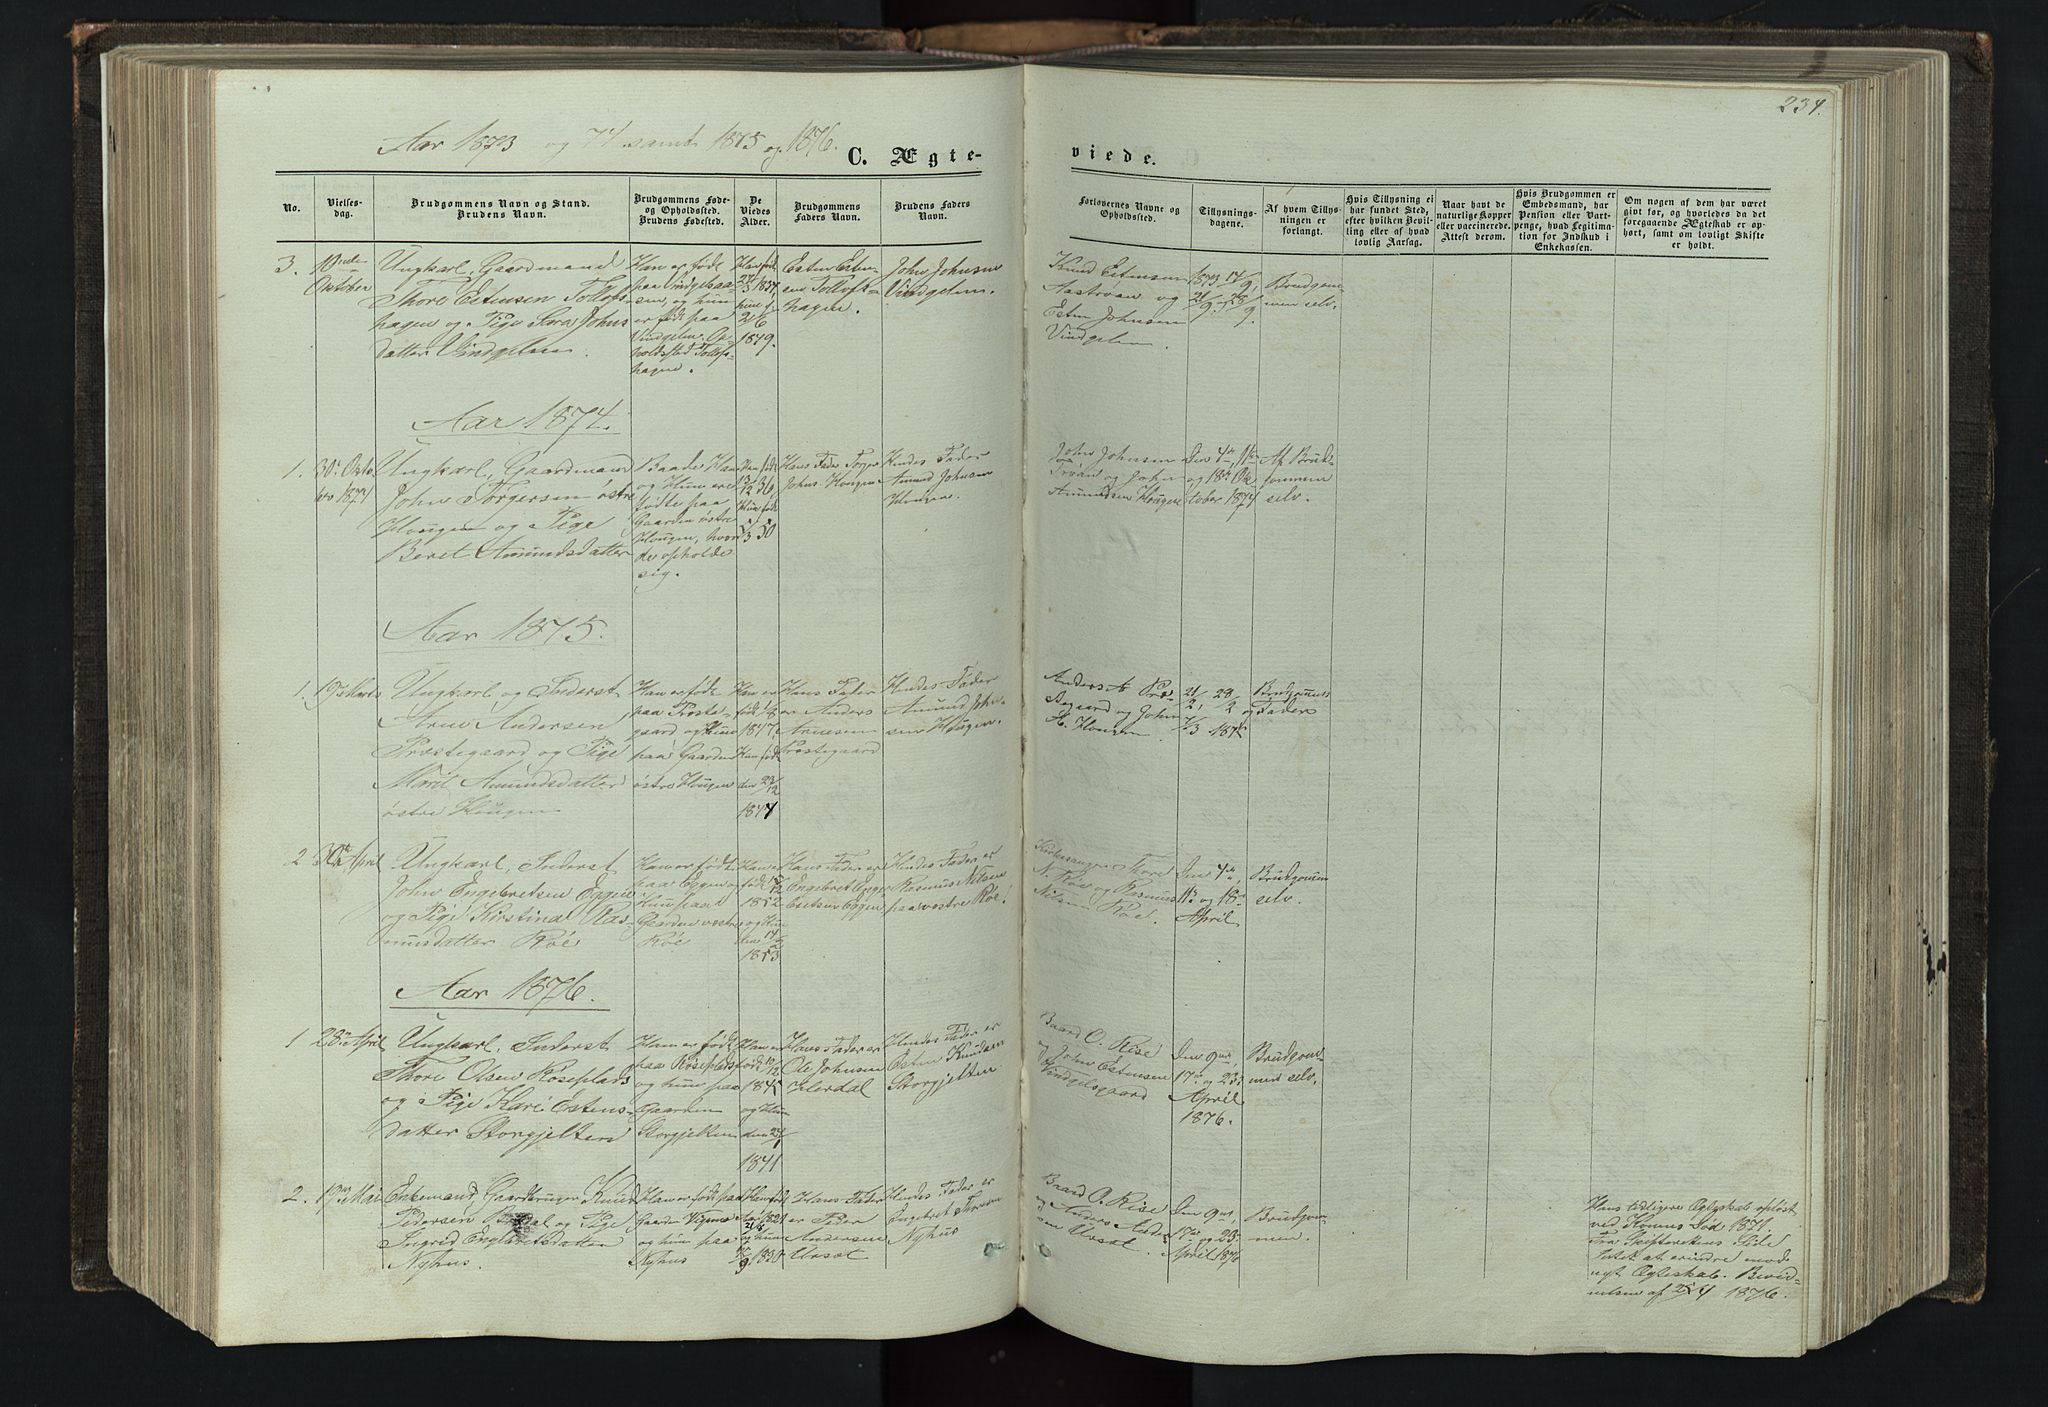 234.
Aar 1873 og 74 samt 1875 og 1876.
C. Ægte-
viede.
No.
Vielses-
dag.
Brudgommens Navn og Stand.
Brudens Navn.
Brudgommens Føde-
og Opholdssted.
Brudens Fødested.
De
Viedes
Alder.
Brudgommens
Faders Navn.
Brudens Faders
Navn.
Forlovernes Navne og
Opholdssted.
Tillysnings-
dagene.
Af hvem Tillys-
ningen er
forlangt.
Hvis Tillysning ei
har fundet Sted,
efter hvilken Bevil-
ling eller af hvad
lovlig Aarsag.
Naar havt de
naturlige Kopper
eller vaccinerede.
Attest derom.
Hvis Brudgommen er
Embedsmand, har
Pension eller Vart-
penge, hvad Legitima-
tion for Indskud i
Enkekassen.
Om nogen af dem har været
gift før, og hvorledes da det
foregaaende Ægteskab er op-
hørt, samt om lovligt Skifte
er holdt.
3.
10de
Oktober
Ungkarl, Gaardmand
Thore Estensen Tollofs-
hagen og Pige Sara Johns
datter Vindgelen.
Han er født
paa Vindgelsaa-
sen, og hun
er født paa
Vindgelen. Op-
holdssted Tollofs-
hagen.
Han født
hun f.
2/6
1849.
Esten Esten-
sen Tollofs-
hagen.
John Johnsen
Vindgelen.
Knud Estensen
Aastrøen og
Esten Johnsen
Vindgelen.
1873 14/9,
21/9. 28/9.
Brudgom-
men selv.
Aar 1874.
1.
30te Okto
ber 1874
Ungkarl, Gaardmand
John Torgersen østre
Hougen og Pige
Beret Amundsdatter
Baade Han
og Hun ere
fødte paa
Gaarden østre
Hougen, hvor
de opholde
sig.
Han født
12 36
Hun født
5/3 50
Hans Fader Torger
Johns. Hougen
Hendes Fader
Amund Johnsen
Hougen.
John Johnsen
Trøan og John
Amundsen Hougen
Den 4de 11te
og 18de Ok-
tober 1874
Af Brud-
gommen
selv.
Aar 1875.
1.
19de Marts
Ungkarl og Inderst
Arne Andersen
Præstegaard og Pige
Marit Amundsdatter
østre Hougen
Han er født
paa Præste-
gaard og Hun
paa Gaarden
østre Hougen
Han er
født /8
1847
Hun født
den 23/12
1847
Hans Fader
er Anders
Arnesen
Præstegaard
Hendes Fader
Amund John-
sen Hougen.
Anders A. Præ-
stegaard og John
A. Hougen
21/2, 28/2 og
7/3 1875
Brudgommens
Fader
2
30te April
Ungkarl, Inderst
John Engebretsen Eggen
og Pige Kirstina Ras-
musdatter Røe
Han er født
paa Eggen og
Hun paa
Gaarden vestre
Røe
Han er
født /12
1852
og Hun
den 14/2
1853
Hans Fader er
Engebret Eggen
Estensen Eggen
Hendes Fader er
Rasmus Nilsen
paa vestre Røe.
Kirkesanger Thore
N. Røe og Rasmus
Nilsen Røe.
Den 4de,
11te og 18de
April
Brudgommen
selv.
Aar 1876.
1
28de April
Ungkarl, Inderst
Thore Olsen Røseplads
og Pige Kari Estens-
datter Storgjelten
Han er født
paa Røseplads
og hun paa
Gaarden
Storgjelten
Han er
født 10/12
1845
og Hun
den 24/1
1841
Hans Fader er
Ole Johnsen
Hlerdal
Hendes Fader er
Esten Knudsen
Storgjelten
Baard O. Rise
og John Estensen
Vindgelsgaard
Den 9de,
17de og 23de
April
1876.
Brudgom-
men selv.
2.
19de Mai
Enkemand, Gaardbruger Knud
Pedersen og Pige
Ingrid Engebretsdatter
Nyhus.
Han er født paa
Gaarden
og hun paa
Nyhus
Han født
1821
og hun
/9 1830
Hans Fader
er Peder
Andersen
Urset
Hendes Fader er
Engebret Thoresen
Nyhus
Baard O. Rise
og Anders Ander-
sen Urset.
Den 9de,
17de og 23de
April 1876
Brudgom-
men.
Hans tidligere Egteskab opløst
ved Konens Død 1871.
Fra Skifterettens Side
Intet at erindre mod
nyt Egteskab. Bevid-
nelse af 25/4 1876.